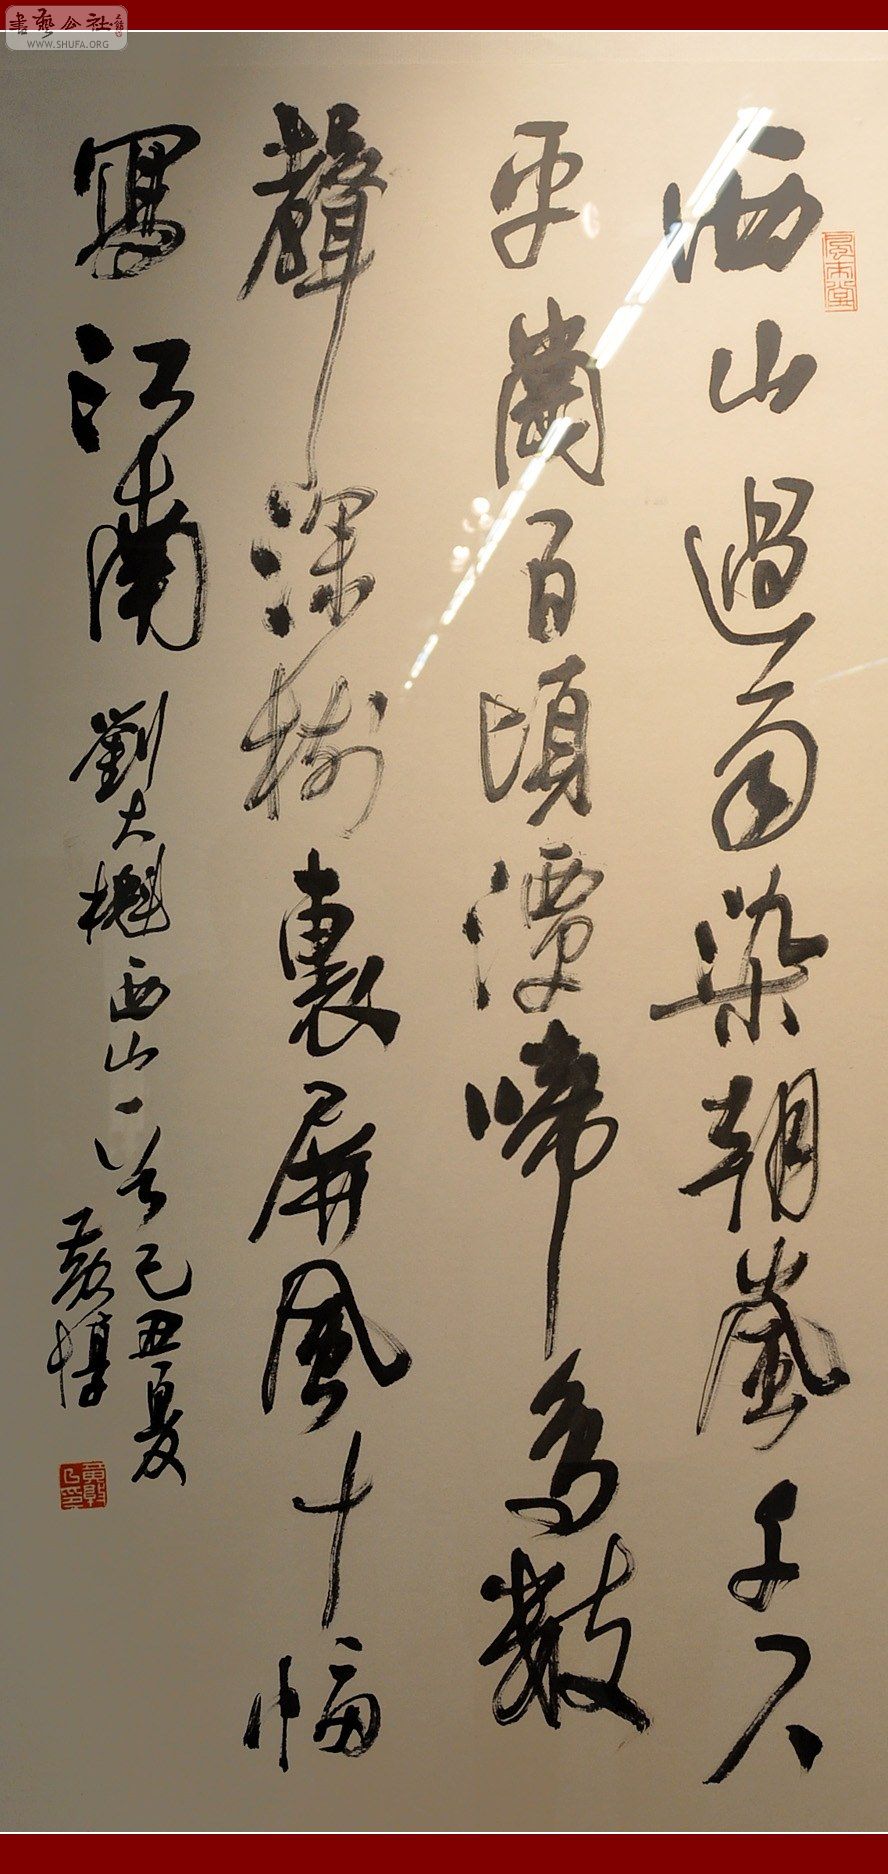 書藝公社
WWW.SHUFA.ORG
風來堂
西山過雨染朝嵐千尺
平崗百頃潭啼鳥數
聲深樹裏屏風十幅
寫江南
劉大櫆西山一首己丑夏
黃惇